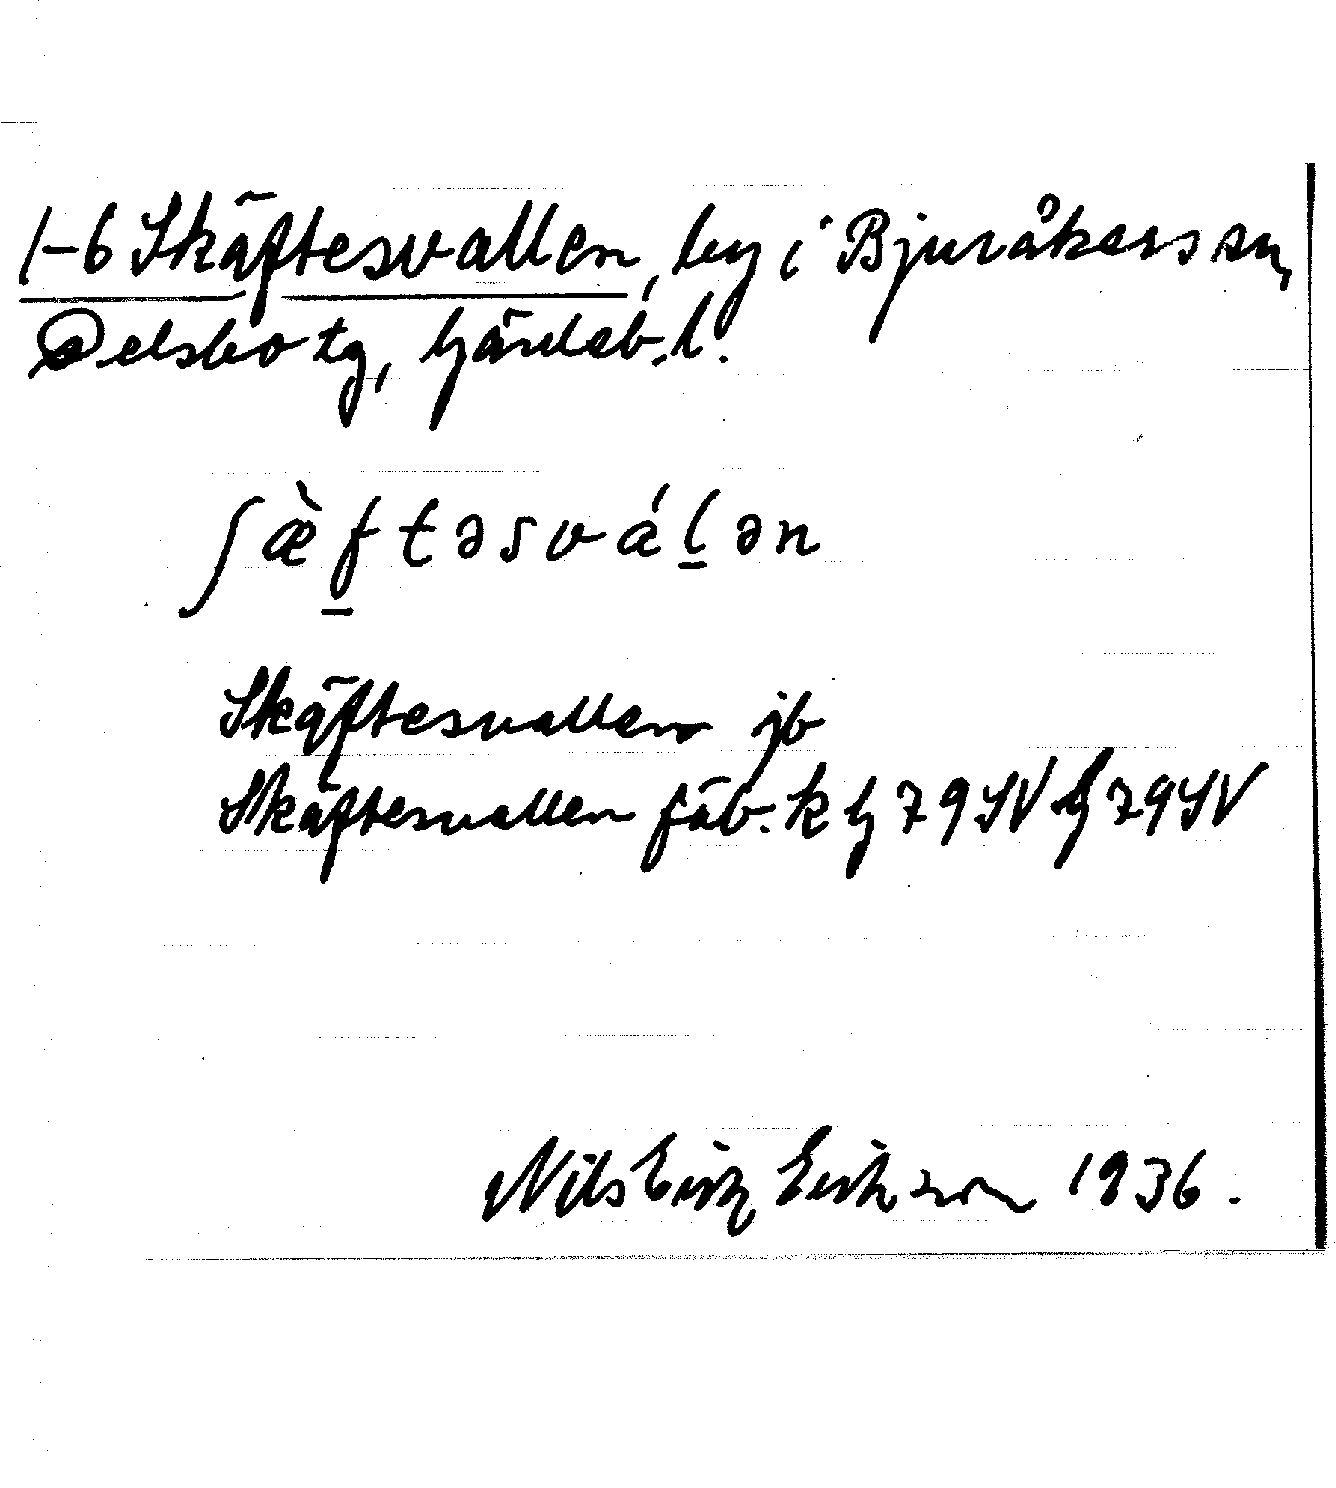 1-6 Skäftesvallen, by i Bjuråkers sn,
Delsbo tg, Gävleb. l.
ʃæ̀f̲təsvál̲ən
Skäftesvallen jb
Skäftesvallen fäb. k G 79 SV G 79 SV
Nils Erik Erikson 1936.